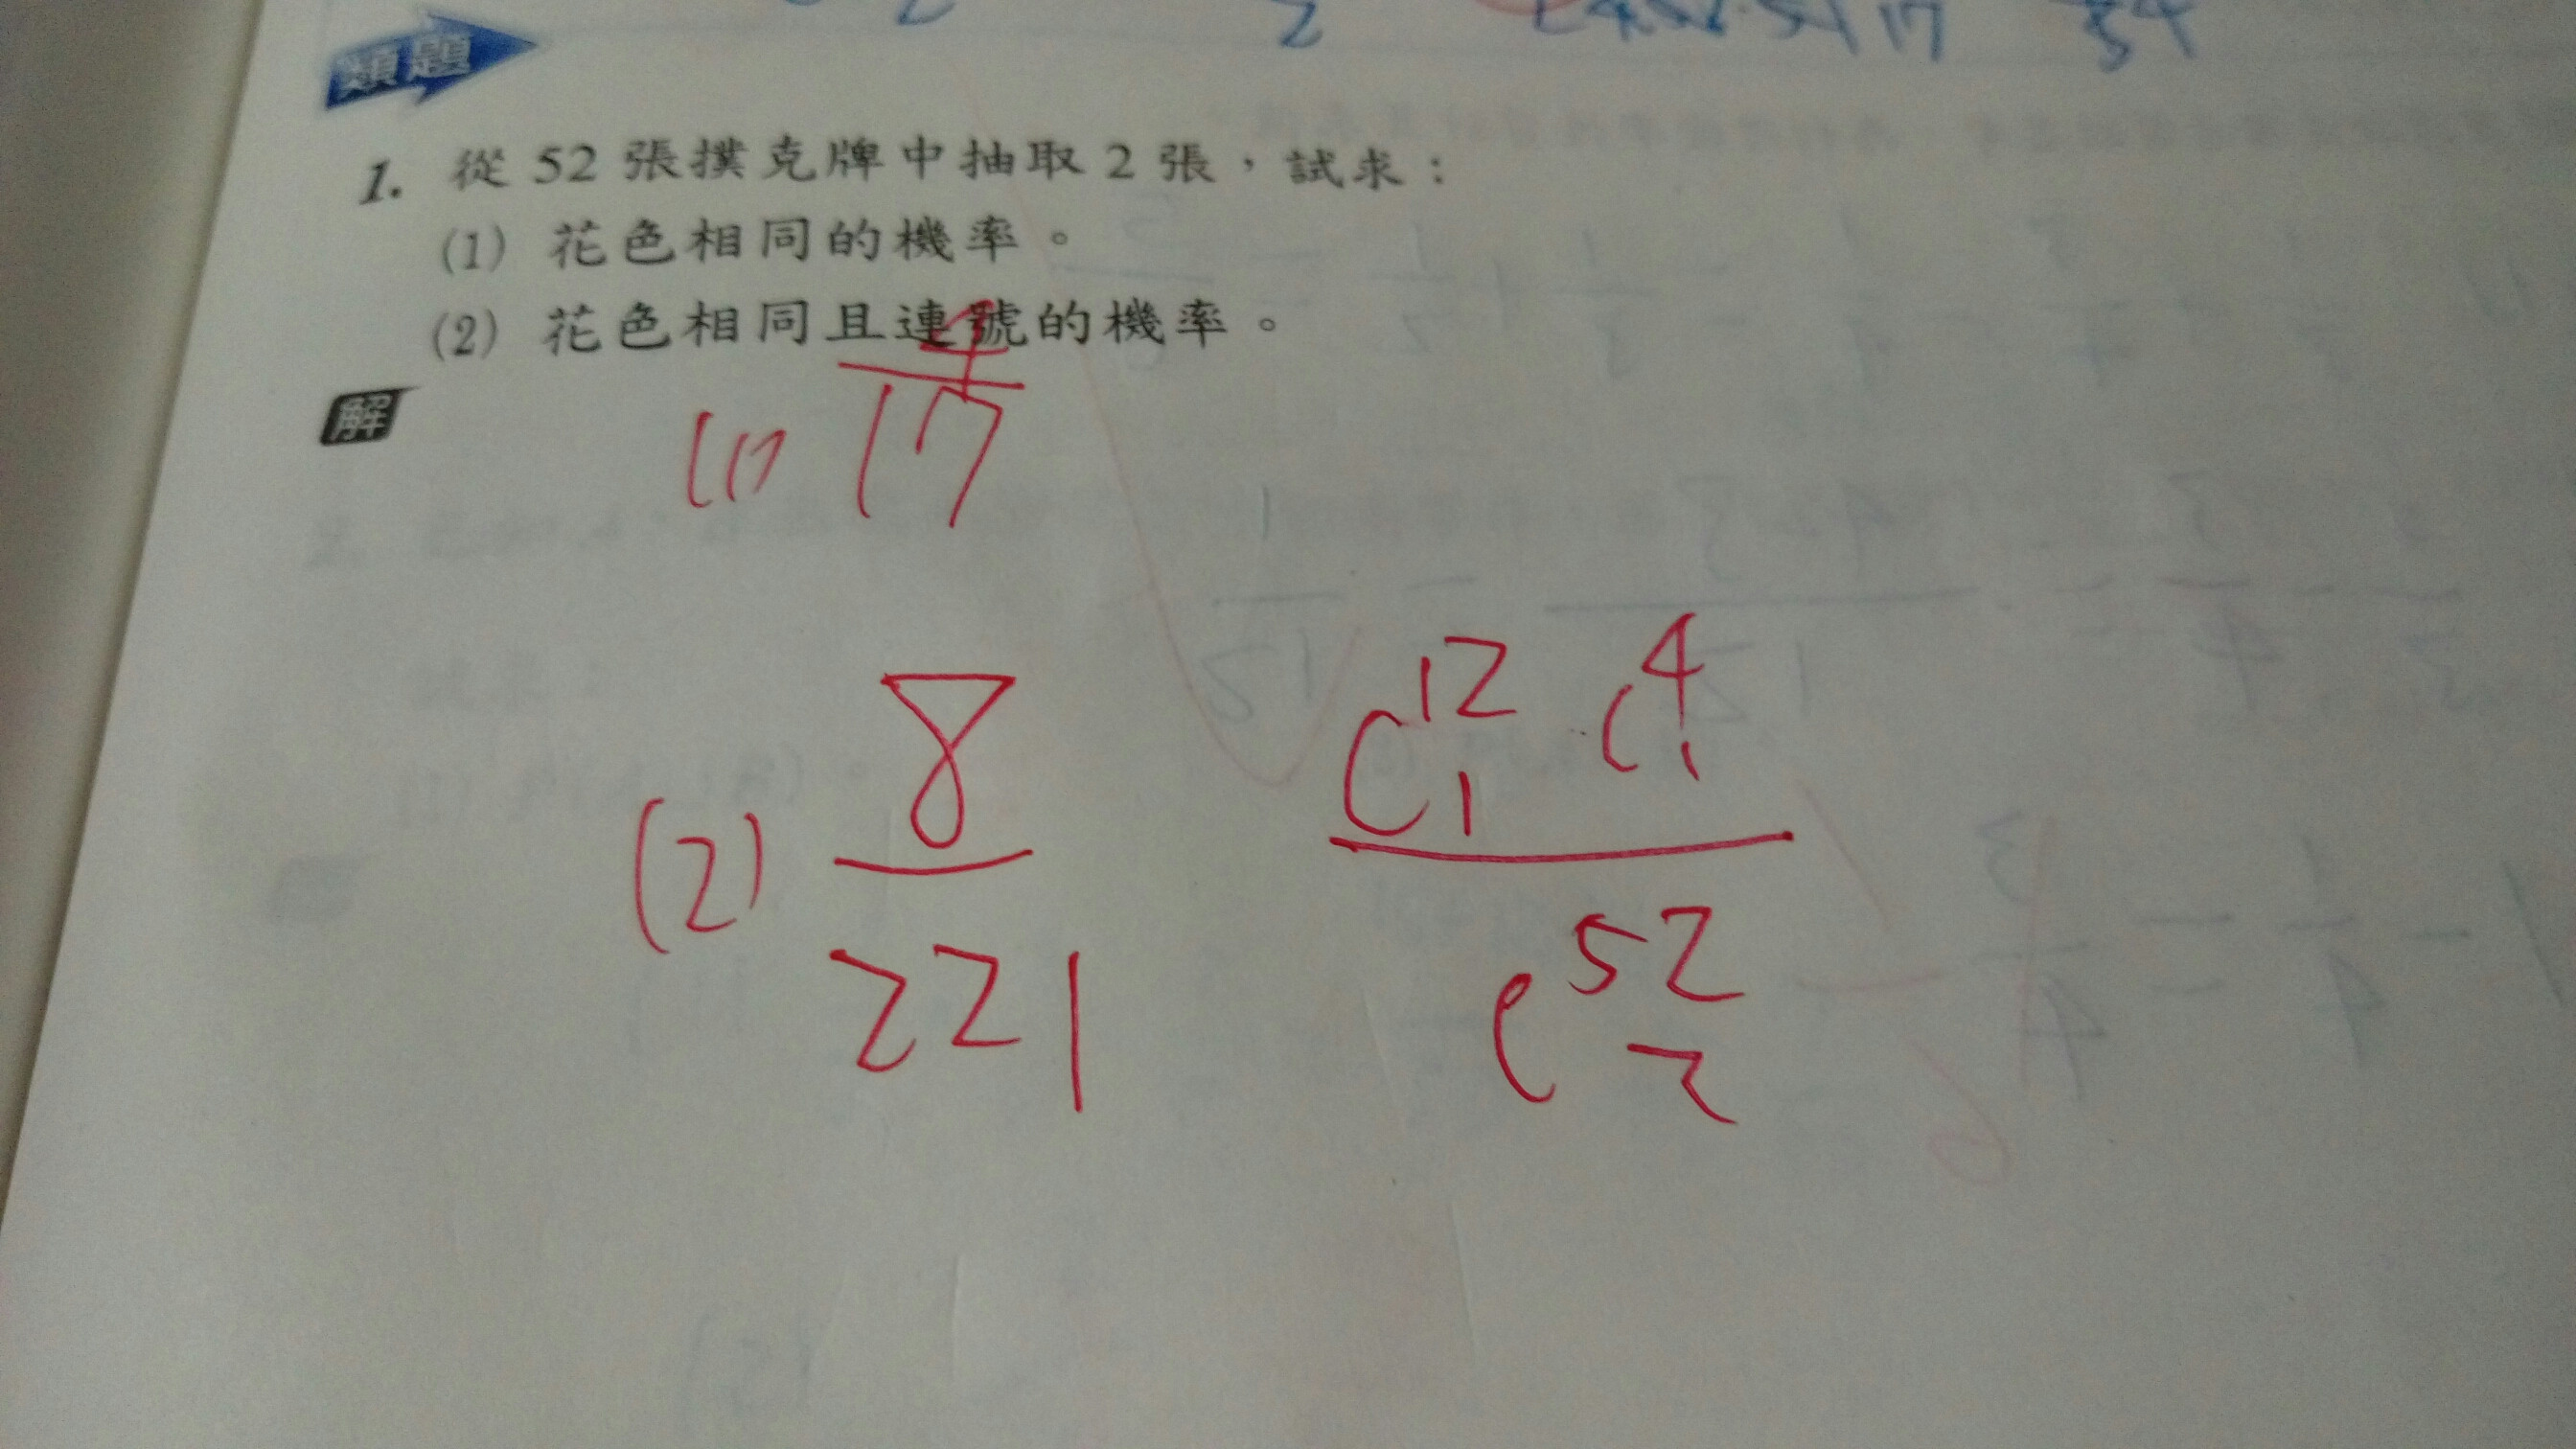 類題
1. 從 52 張撲克牌中抽取 2 張，試求：
(1) 花色相同的機率。
(2) 花色相同且連號的機率。
解
(1) 4/17
(2) 8/221
C 12 1 C 4 1
C 52 2